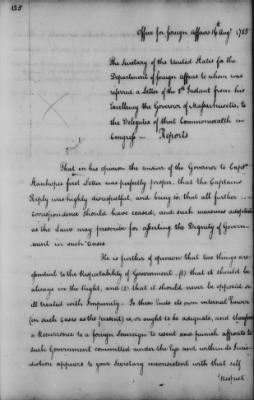 125
Office for foreign Affairs 19th Augt 1785
The Secretary of the United States for the
Department of foreign affairs to whom was
referred a Letter of the 8th Instant from his
Excellency the Governor of Massachusetts, to
the Delegates of that Commonwealth in
Congress — Reports
That in his opinion the answer of the Governor to Capt
Stanhopes first Letter was perfectly proper, that the Captains
Reply was highly disrespectful, and being so, that all further
Correspondence should have ceased, and such measures adopted
as the Laws may prescribe for asserting the Dignity of Govern-
ment in such Cases
He is further of opinion that two things are
essential to the Respectability of Government. (1) that it should be
always in the Right, and (2) that it should never be opposed or
ill treated with Impunity. In these Cases its own internal Power
(in such Cases as the present) is, or ought to be adequate, and therefore
a Recurrence to a foreign Sovereign to resent and punish affronts to
such Government committed under the Eye and within its Juris-
diction appears to your Secretary inconsistent with that self
Respect